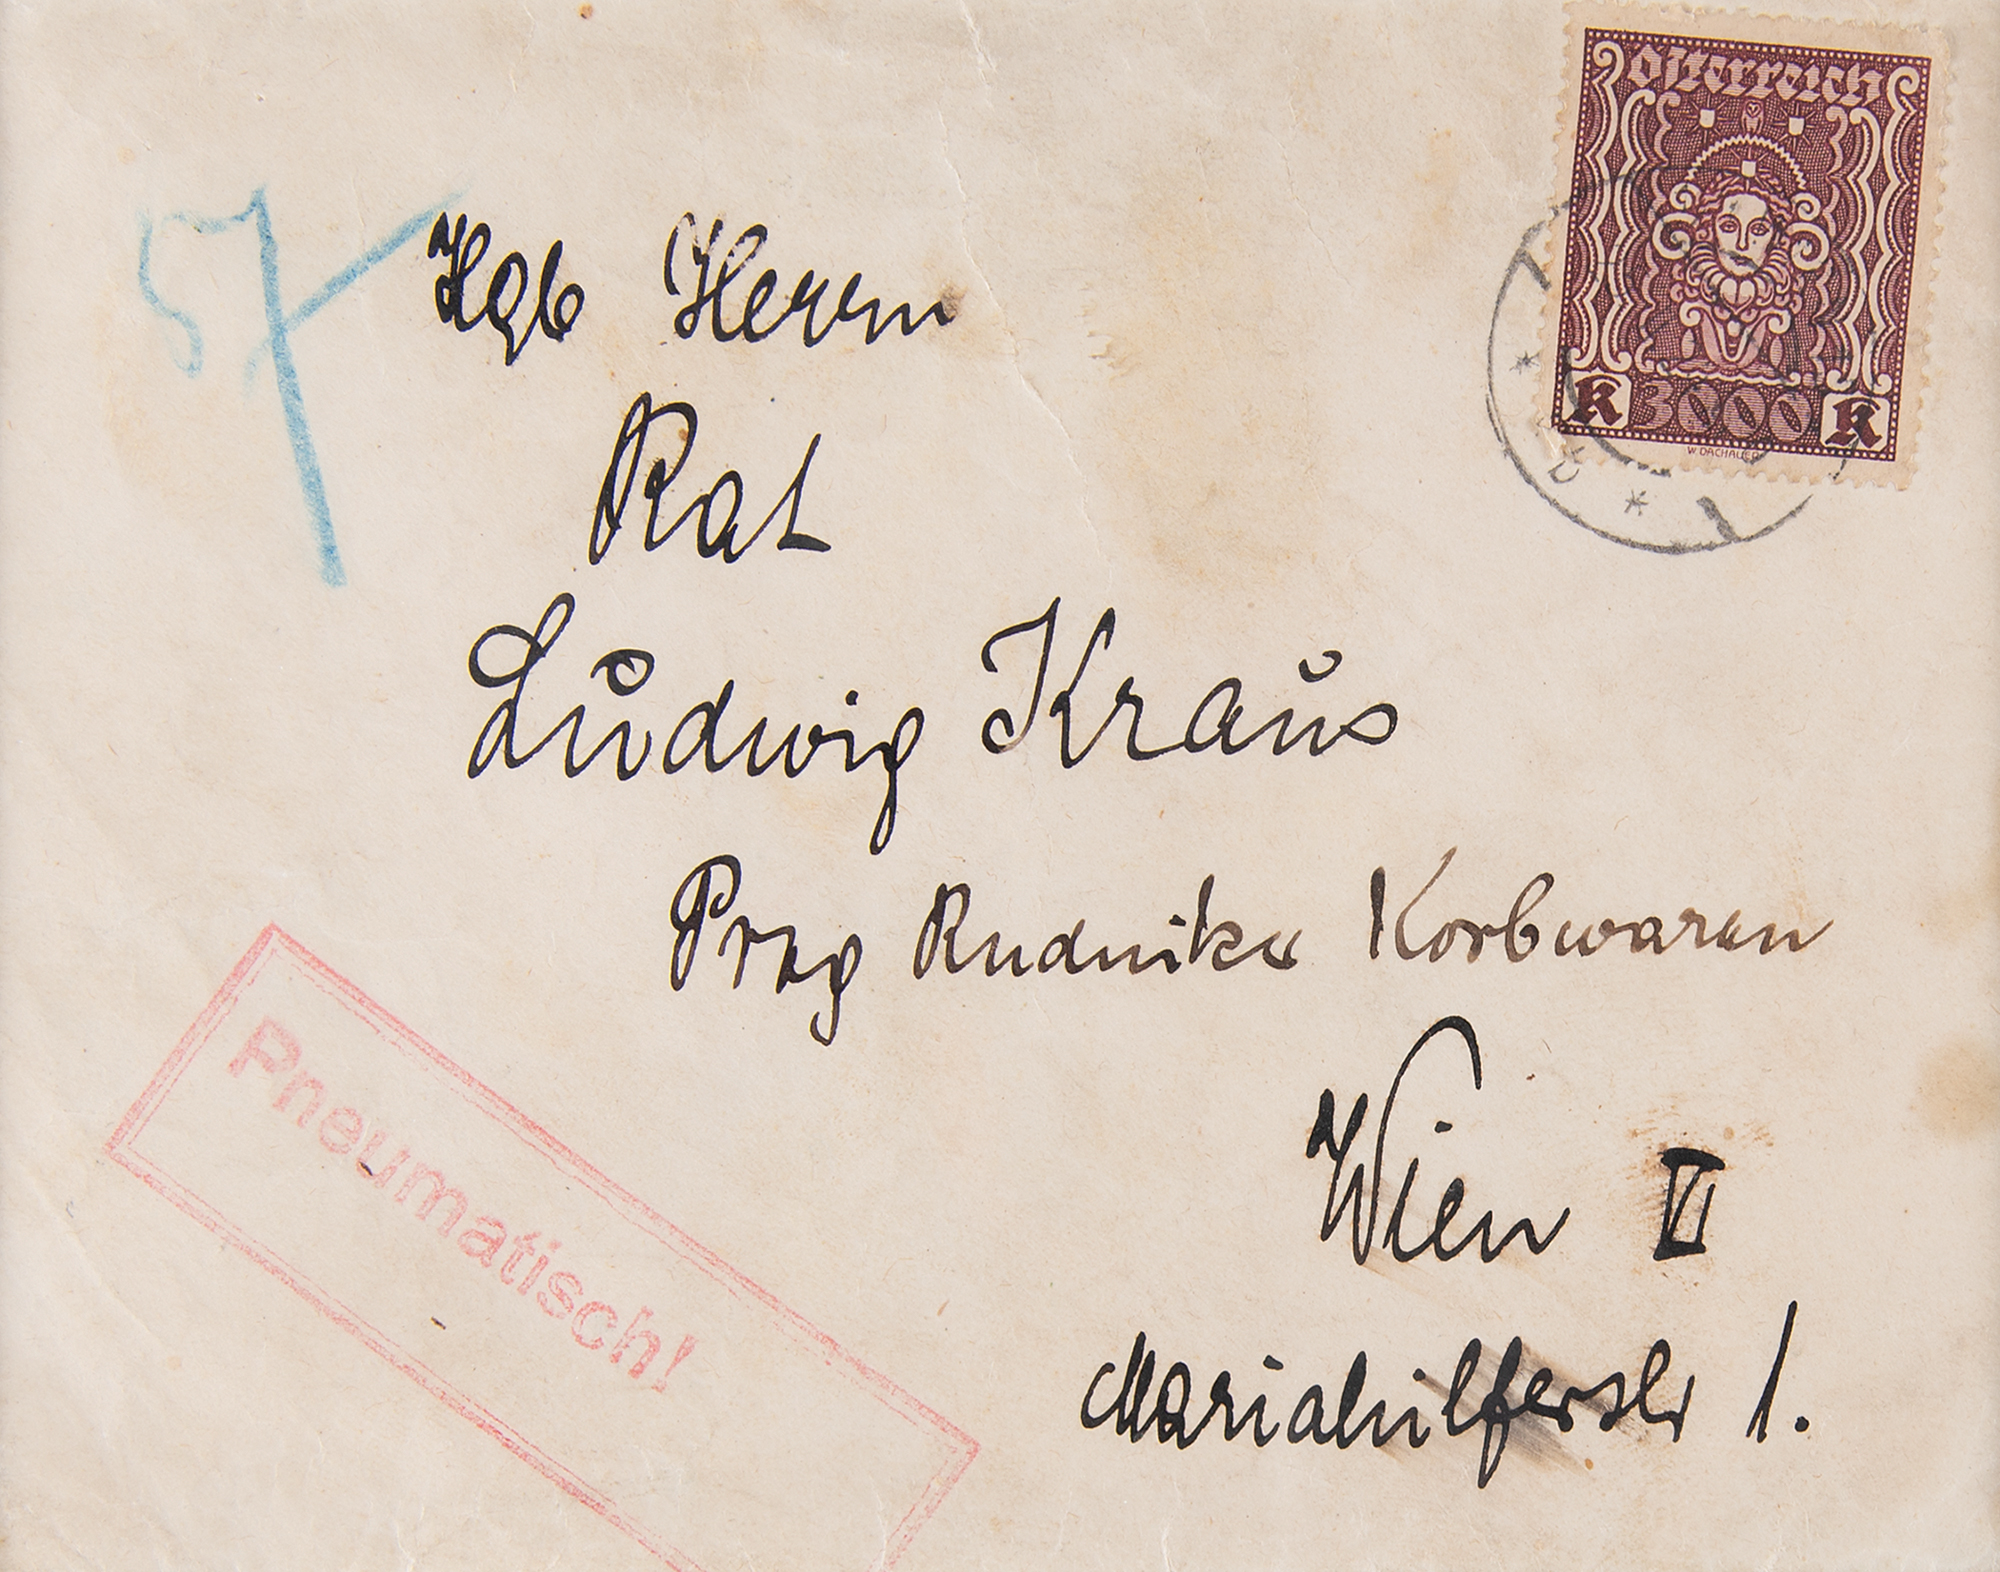 Österreich
K 3000 K
W. DACHAUER
57
Hgb Herrn
Rat
Ludwig Kraus
Prag Rudniker Korbwaren
Wien VI
Mariahilferstr 1.
Pneumatisch!